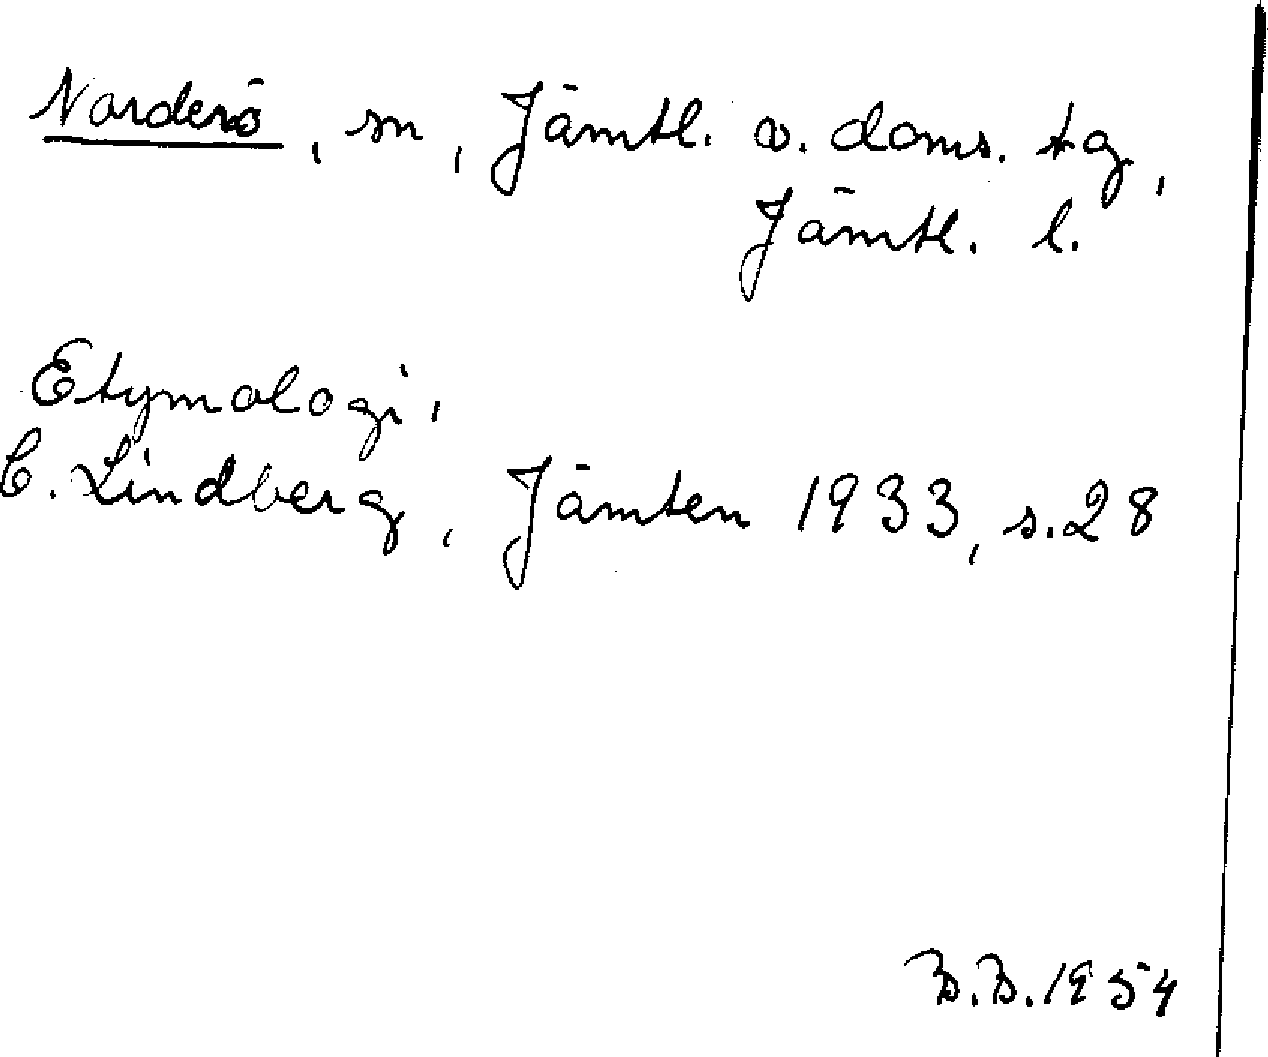 Norderö, sn, Jämtl. v. doms. tg,
Jämtl. l.
Etymologi.
C. Lindberg, Jämten 1933, s. 28
B.B. 1954